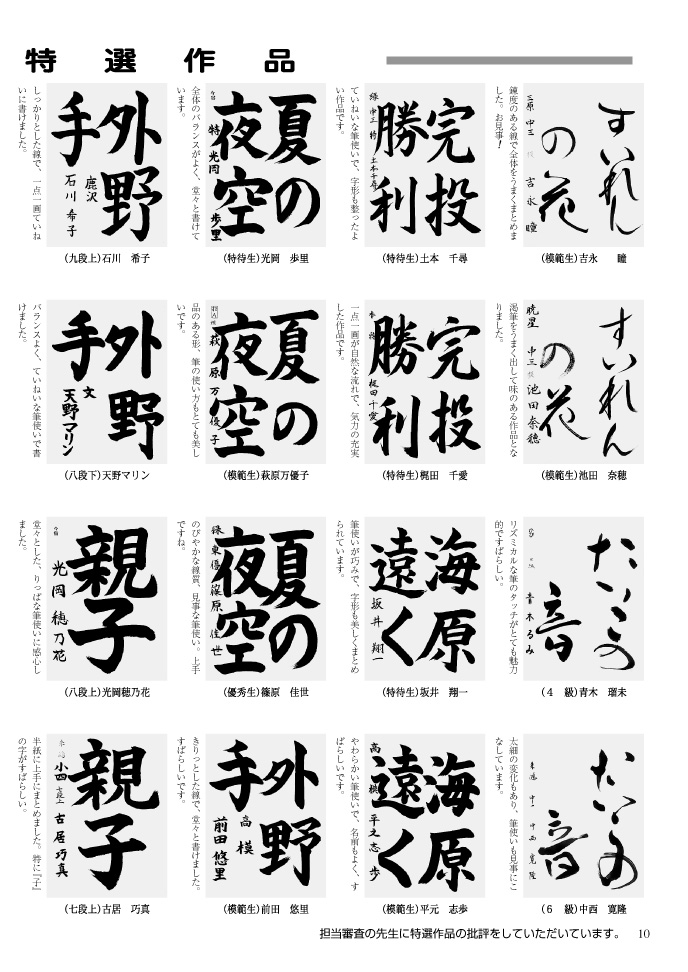 特選作品
すいれん
の花
三原 中三 吉永 瞳
鍛度のある線で全体をうまくまとめま
した。お見事!
(模範生)吉永 瞳
完投
勝利
緑 中三 特 土本千尋
ていねいな筆使いで、字形も整ったよ
い作品です。
(特待生)土本 千尋
夏の
夜空
特 光岡 歩里
全体のバランスがよく、堂々と書けて
います。
(特待生)光岡 歩里
外野
手
鹿沢
石川 希子
しっかりとした線で、一点一画ていね
いに書けました。
(九段上)石川 希子
すいれん
の花
暁星 中三 池田奈穂
渇筆をうまく出して味のある作品とな
りました。
(模範生)池田 奈穂
完投
勝利
梶田千愛
一点一画が自然な流れで、気力の充実
した作品です。
(特待生)梶田 千愛
夏の
夜空
萩原万優子
品のある形、筆の使い方もとても美し
いです。
(模範生)萩原万優子
外野
手
文
天野マリン
バランスよく、ていねいな筆使いで書
けました。
(八段下)天野マリン
たいこの
音
青木るみ
リズミカルな筆のタッチがとても魅力
的ですばらしい。
(4 級)青木 瑠未
海原
遠く
坂井 翔一
筆使いが巧みで、字形も美しくまとめ
られています。
(特待生)坂井 翔一
夏の
夜空
緑東優 篠原佳世
のびやかな線質、見事な筆使い。上手
ですね。
(優秀生)篠原 佳世
親
子
光岡穂乃花
堂々とした、りっぱな筆使いに感心し
ました。
(八段上)光岡穂乃花
たいこの
音
中西寛隆
太細の変化もあり、筆使いも見事にこ
なしています。
(6 級)中西 寛隆
海原
遠く
高 模 平元志歩
やわらかい筆使いで、名前もよく、す
ばらしいです。
(模範生)平元 志歩
外野
手
高 模
前田悠里
きりっとした線で、堂々と書けました。
すばらしいです。
(模範生)前田 悠里
親
子
小四 七段上 古居巧真
半紙に上手にまとめました。特に『子』
の字がすばらしい。
(七段上)古居 巧真
担当審査の先生に特選作品の批評をしていただいています。 10